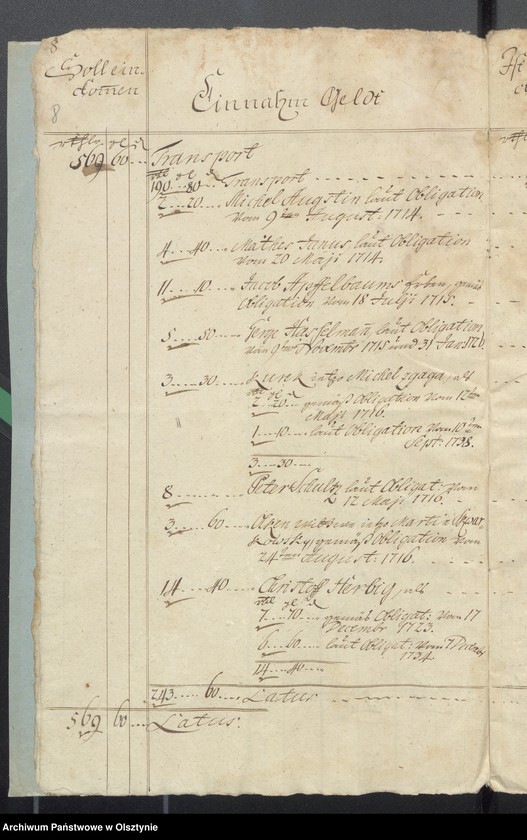 8
Soll ein-
komen
8
Einnahm Geldt
rthlr gr d
569 60 Transport
rtl gr d
190 80 Transport
2 20 Michel Augstin laut Obligation
vom 9ten August: 1714.
4 40 Mathes Janus laut Obligation
vom 20 Maji 1714.
11 10 Jacob Apffelbaums Erben, gemäß
Obligation vom 18 Julji 1715.
5 50 Hasselman, laut Obligation
vom 9ten Novembr 1715 und 31 Jan
3 30 Kurek intzo Michel Zgaga, als
rtl gr d
2 20 gemäß Obligation vom 12ten
Maji 1716.
1 10 laut Obligation vom
Sept: 1738.
3 30
8 Peter Schultz laut Obligat: vom
12 Maji 1716.
3 60 intzo Martin
gemäß Obligation vom
24ten August: 1716.
14 40 Christoff Herbig, als
rtl gr d
7 70 gemäß Obligat: vom 17
Decembr 1723.
6 60 laut Obligat: vom 7
1734
14 40
243 60 Latus
569 60 Latus:
Archiwum Państwowe w Olsztynie